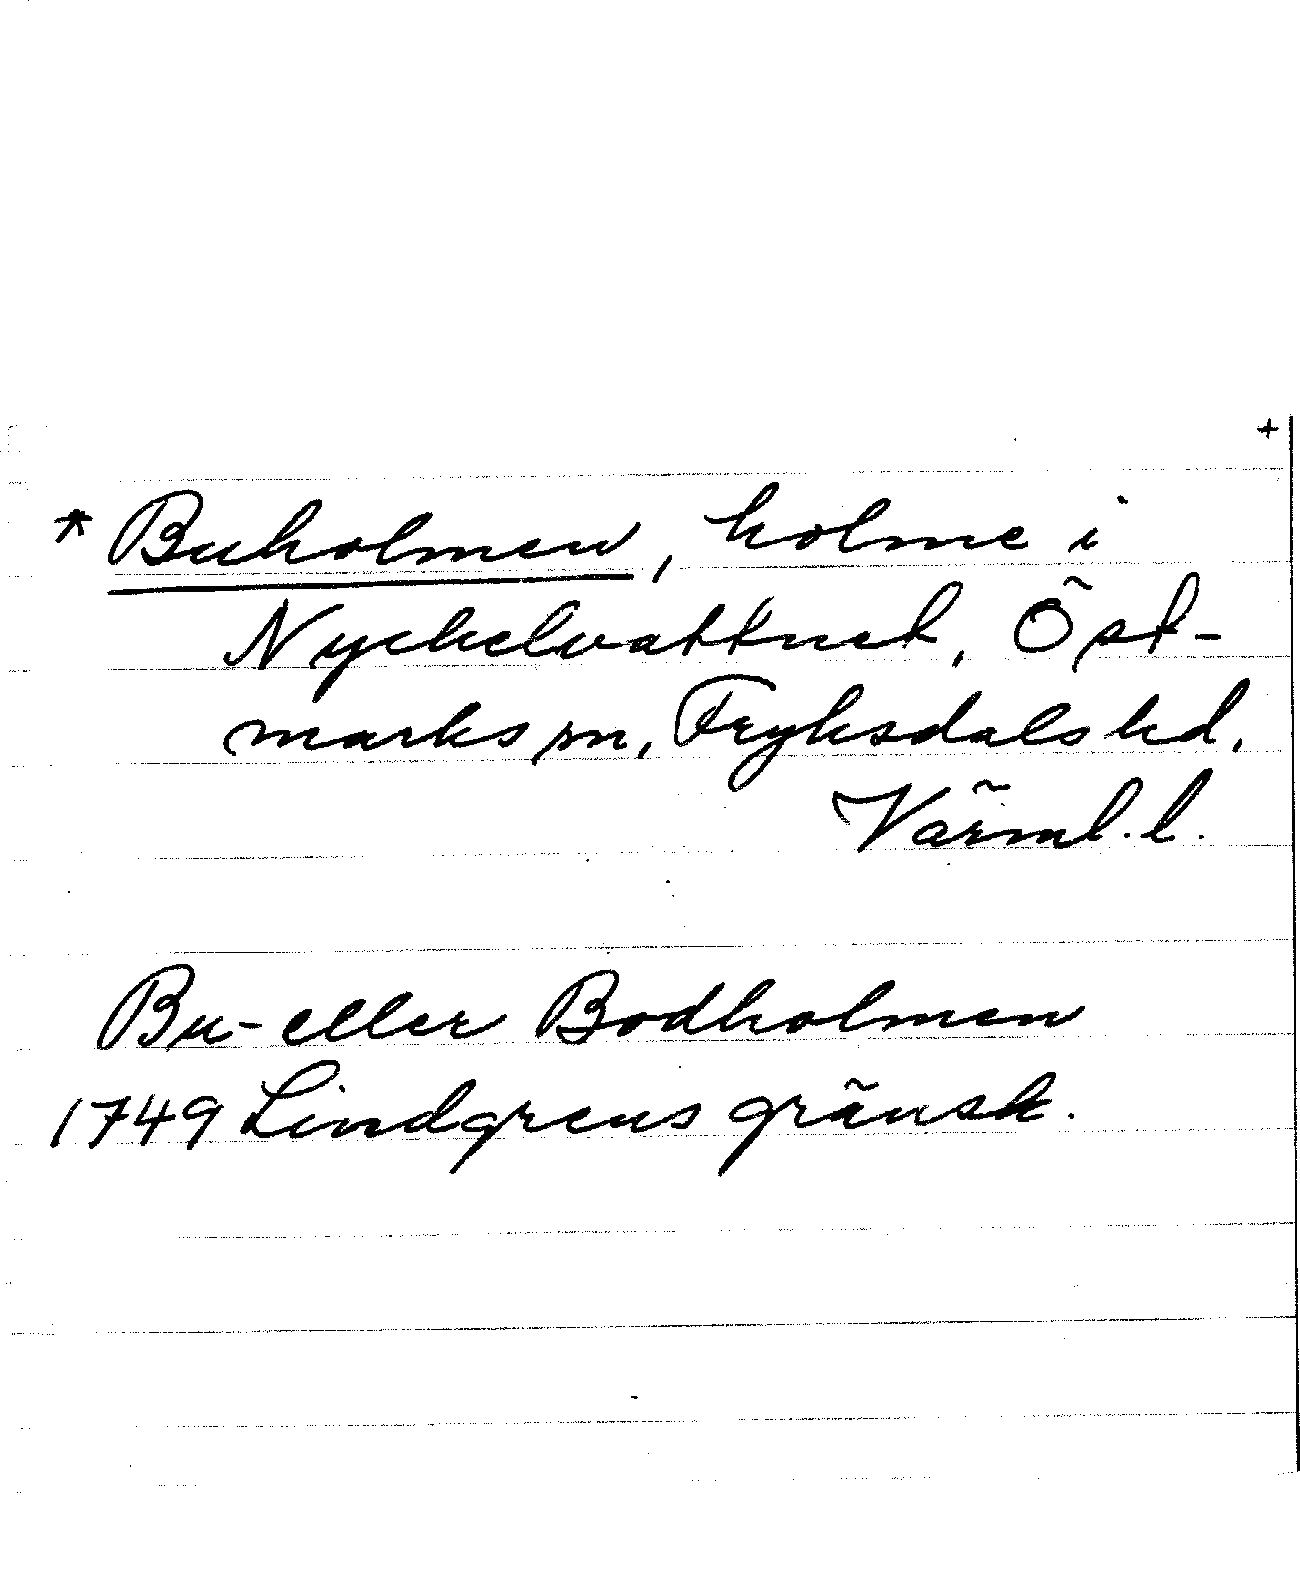 +
* Buholmen, holme i
Nyckelvattnet, Öst-
marks sn, Fryksdals hd,
Värml. l.
Bu- eller Bodholmen
1749 Lindgrens gränsk.